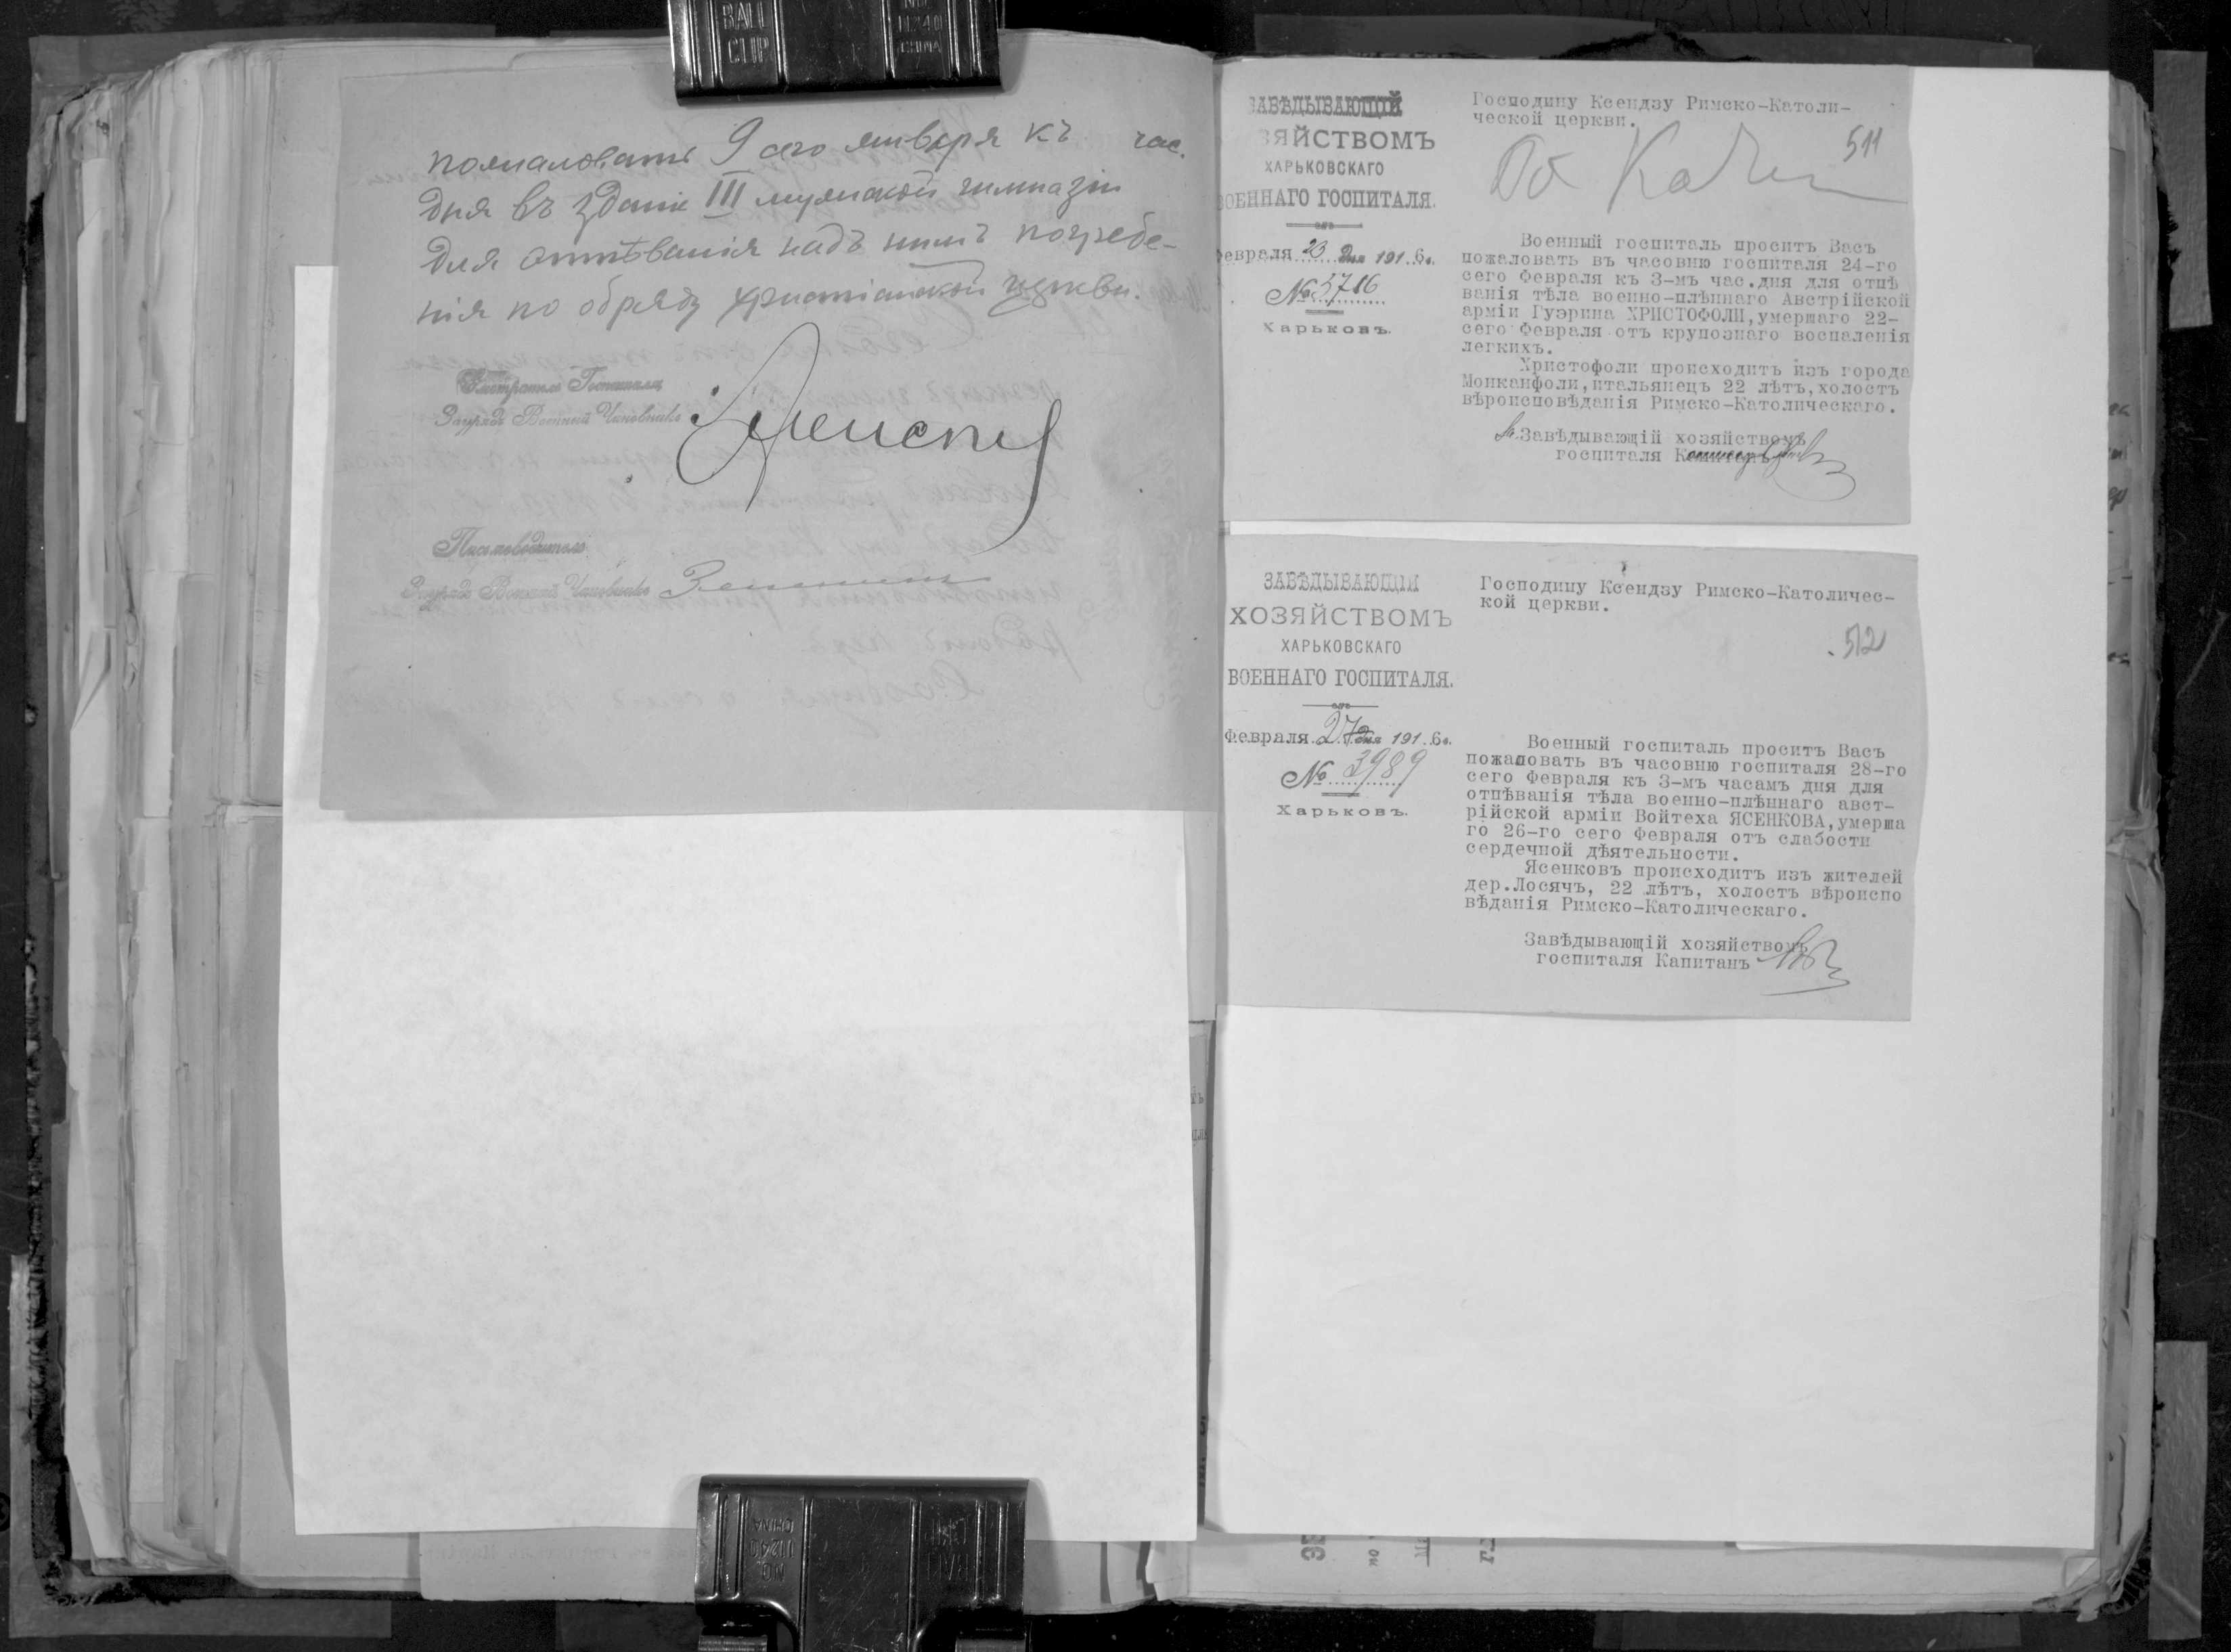 пожаловать 9 сего января къ час.
дня въ зданіе III мужской гимназіи
для отпѣванія надъ нимъ погребе-
нія по обряду христіанской церкви.
Смотритель Госпиталя
Зауряд Военный Чиновникъ
Письмоводитель
Зауряд Военный Чиновникъ
ЗАВѢДЫВАЮЩІЙ
ЗЯЙСТВОМЪ
ХАРЬКОВСКАГО
ВОЕННАГО ГОСПИТАЛЯ.
Февраля 23 дня 1916 г.
№ 3716
Харьковъ.
Господину Ксендзу Римско-Католи-
ческой церкви.
511
Военный госпиталь проситъ Васъ
пожаловать въ часовню госпиталя 24-го
сего Февраля къ 3-мъ час.дня для отпѣ
ванія тѣла военно-плѣннаго Австрійской
арміи Гуэрина ХРИСТОФОЛИ,умершаго 22-
сего Февраля отъ крупознаго воспаленія
легкихъ.
Христофоли происходитъ изъ города
Монканфоли,итальянецъ 22 лѣтъ,холостъ
вѣроисповѣданія Римско-Католическаго.
Завѣдывающій хозяйствомъ
госпиталя
ЗАВѢДЫВАЮЩІЙ
ХОЗЯЙСТВОМЪ
ХАРЬКОВСКАГО
ВОЕННАГО ГОСПИТАЛЯ.
Февраля 27 дня 1916 г.
№ 3989
Харьковъ.
Господину Ксендзу Римско-Католичес-
кой церкви.
512
Военный госпиталь проситъ Васъ
пожаловать въ часовню госпиталя 28-го
сего Февраля къ 3-мъ часамъ дня для
отпѣванія тѣла военно-плѣннаго авст-
рійской арміи Войтеха ЯСЕНКОВА,умерша
го 26-го сего Февраля отъ слабости
сердечной дѣятельности.
Ясенковъ происходитъ изъ жителей
дер.Лосячъ, 22 лѣтъ, холостъ вѣроиспо
вѣданія Римско-Католическаго.
Завѣдывающій хозяйствомъ
госпиталя Капитанъ